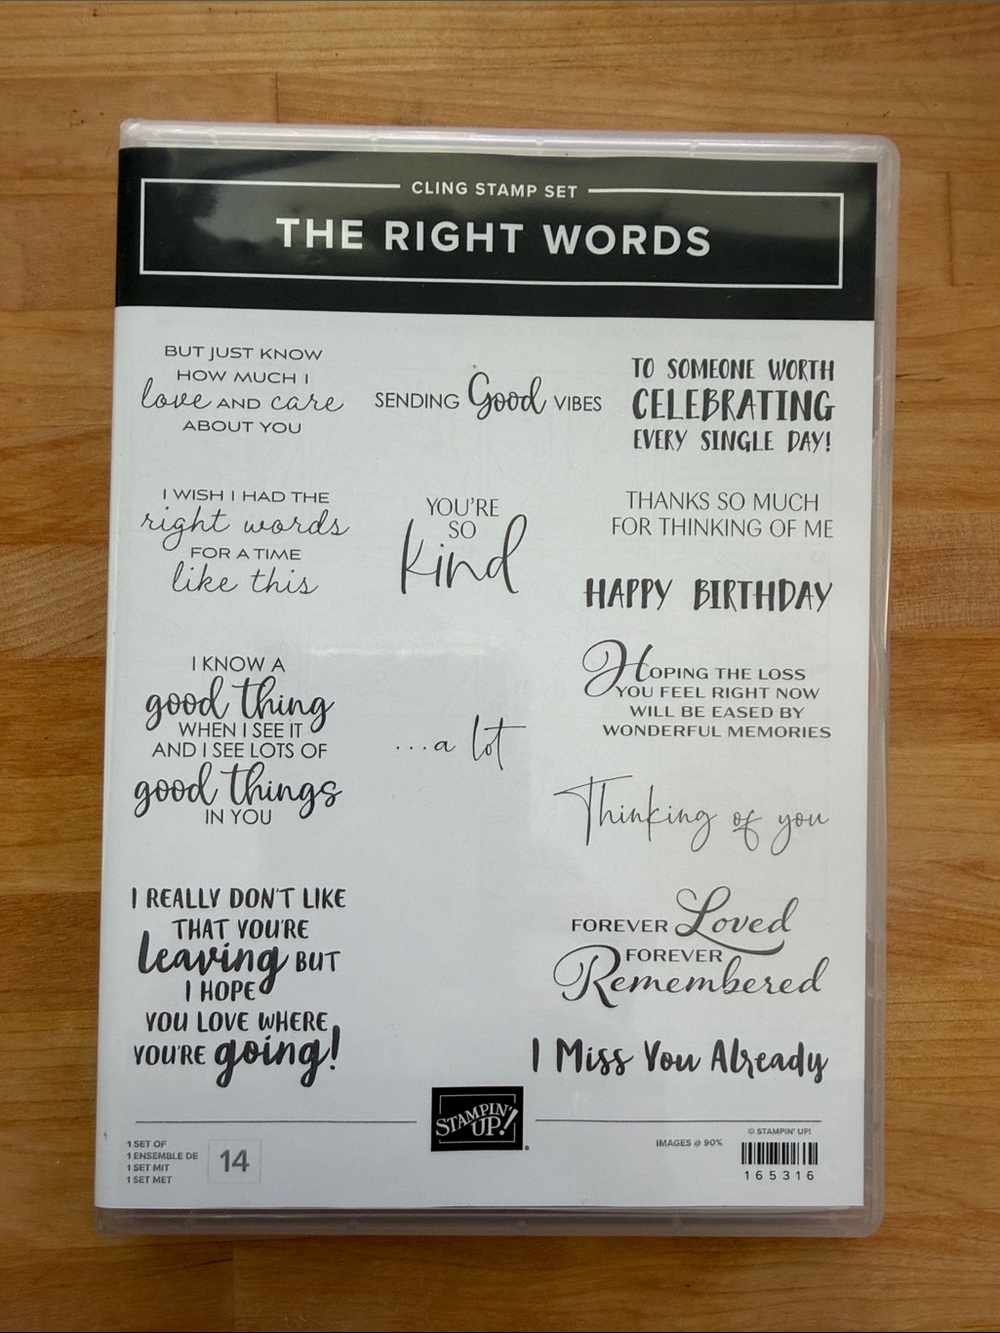 CLING STAMP SET
THE RIGHT WORDS
BUT JUST KNOW
HOW MUCH I
love AND care
ABOUT YOU
SENDING Good VIBES
TO SOMEONE WORTH
CELEBRATING
EVERY SINGLE DAY!
I WISH I HAD THE
right words
FOR A TIME
like this
YOU'RE
SO
kind
THANKS SO MUCH
FOR THINKING OF ME
HAPPY BIRTHDAY
I KNOW A
good thing
WHEN I SEE IT
AND I SEE LOTS OF
good things
IN YOU
...a lot
HOPING THE LOSS
YOU FEEL RIGHT NOW
WILL BE EASED BY
WONDERFUL MEMORIES
Thinking of you
I REALLY DON'T LIKE
THAT YOU'RE
leaving BUT
I HOPE
YOU LOVE WHERE
YOU'RE going!
FOREVER Loved
FOREVER
Remembered
I Miss You Already
STAMPIN' UP!
1 SET OF
1 ENSEMBLE DE
1 SET MIT
1 SET MET
14
IMAGES @ 90%
© STAMPIN' UP!
165316